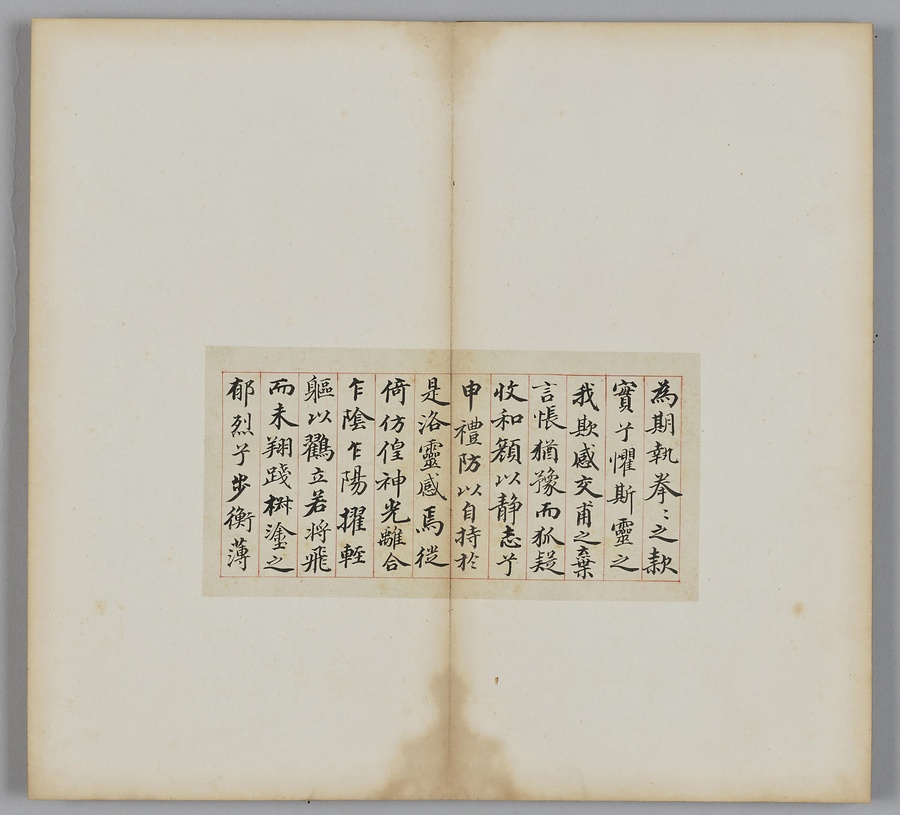 為期執拳〻之款
實兮懼斯靈之
我欺感交甫之棄
言悵猶豫而狐疑
收和顏以静志兮
申禮防以自持於
是洛靈感焉徙
倚仿偟神光離合
乍陰乍陽擢輕
軀以鸖立若將飛
而未翔踐椒塗之
郁烈兮步衡薄